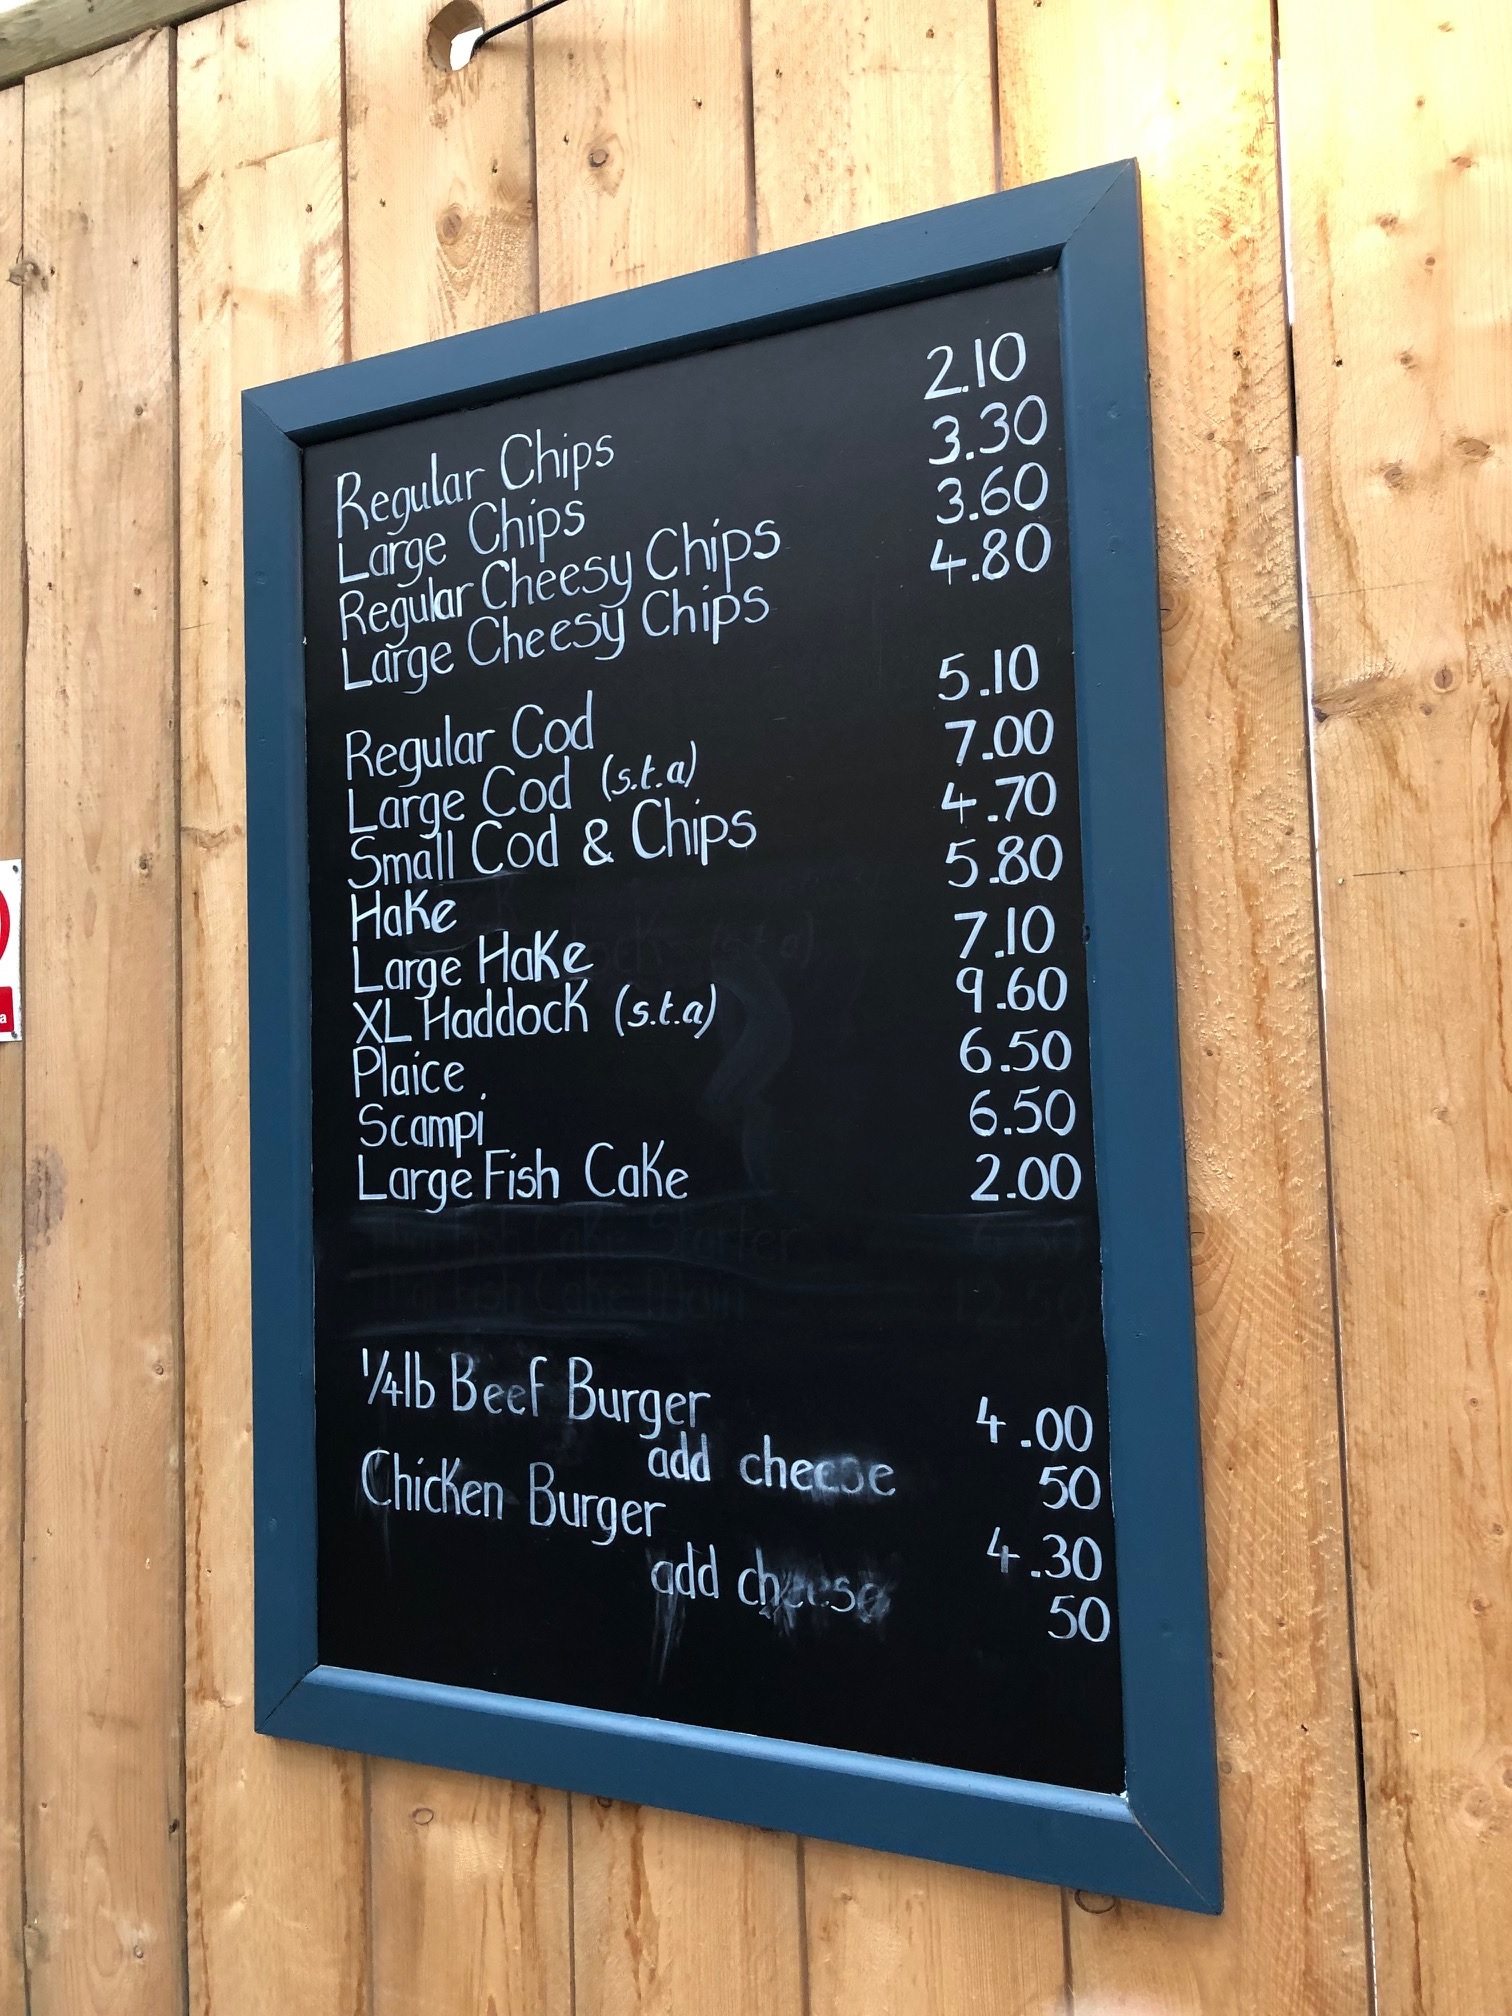 Regular Chips 2.10
Large Chips 3.30
Regular Cheesy Chips 3.60
Large Cheesy Chips 4.80
Regular Cod 5.10
Large Cod (s.t.a) 7.00
Small Cod & Chips 4.70
Hake 5.80
Large Hake 7.10
XL Haddock (s.t.a) 9.60
Plaice 6.50
Scampi 6.50
Large Fish Cake 2.00
Fish Cake Starter 6.50
Fish Cake Main 12.50
1/4lb Beef Burger 4.00
add cheese 50
Chicken Burger 4.30
add cheese 50
a